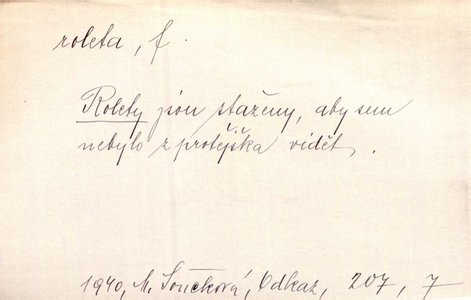 roleta, f.
Rolety jsou staženy, aby sem
nebylo z protějška vidět.
1940, M. Součková, Odkaz, 207, 7